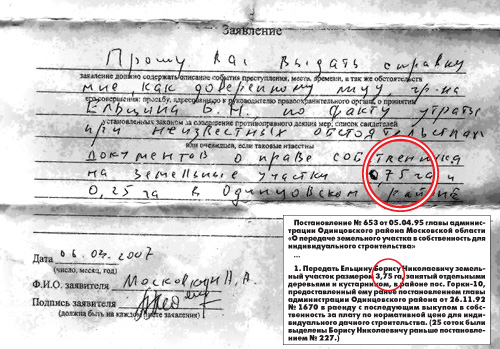 Заявление
Прошу Вас выдать справку
заявление должно содержать описание события преступления, места, времени, а так же обстоятельств
мне, как доверенному лицу, гр-на
его совершения: просьбу, адресованную к руководителю правоохранительного органа, о принятии
Ельцина Б.Н. по факту утраты
установленных законом за совершение противоправного деяния мер, список свидетелей
при неизвестных обстоятельствах
или очевидцев, если таковые известны
документов о праве собственника
на земельные участки 0,75 га и
0,25 га в Одинцовском районе
Дата 06.04.2007
(число, месяц, год)
Ф.И.О. заявителя Н.А.
Подпись заявителя
(должна быть на каждом листе заявления)
Постановление № 653 от 05.04.95 главы админис-
трации Одинцовского района Московской области
«О передаче земельного участка в собственность для
индивидуального строительства»
...
1. Передать Ельцину Борису Николаевичу земель-
ный участок размером 3,75 га, занятый отдельными
деревьями и кустарником, в районе пос. Горки-10,
предоставленный ему ранее постановлением главы
администрации Одинцовского района от 26.11.92
№ 1670 в аренду с последующим выкупом в собст-
венность за плату по нормативной цене для инди-
видуального дачного строительства. (25 соток были
выделены Борису Николаевичу раньше постановле-
нием № 227.)